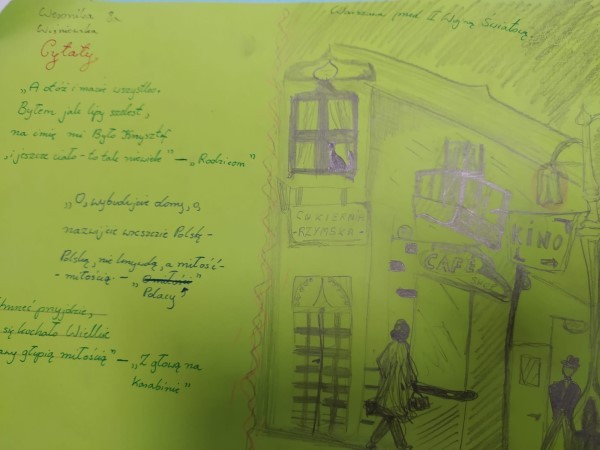 Weronika 8a
Wiśniewska
Cytaty
„A otóż i macie wszystko.
Byłem jak lipy szelest,
na imię mi było Krzysztof
i jeszcze ciało - to tak niewiele" - „Rodzicom"
„O, wybudujcie domy, o,
nazwijcie wreszcie Polskę -
Polską, nie krzywdą, a miłość -
- miłością. - „O miłości
Polacy"
przyjdzie,
się kochało Wielkie
głupią miłością" - „Z głową na
Karabinie"
Warszawa przed II Wojną Światową.
CUKIERNIA
-RZYMSKA-
CAFE
KINO